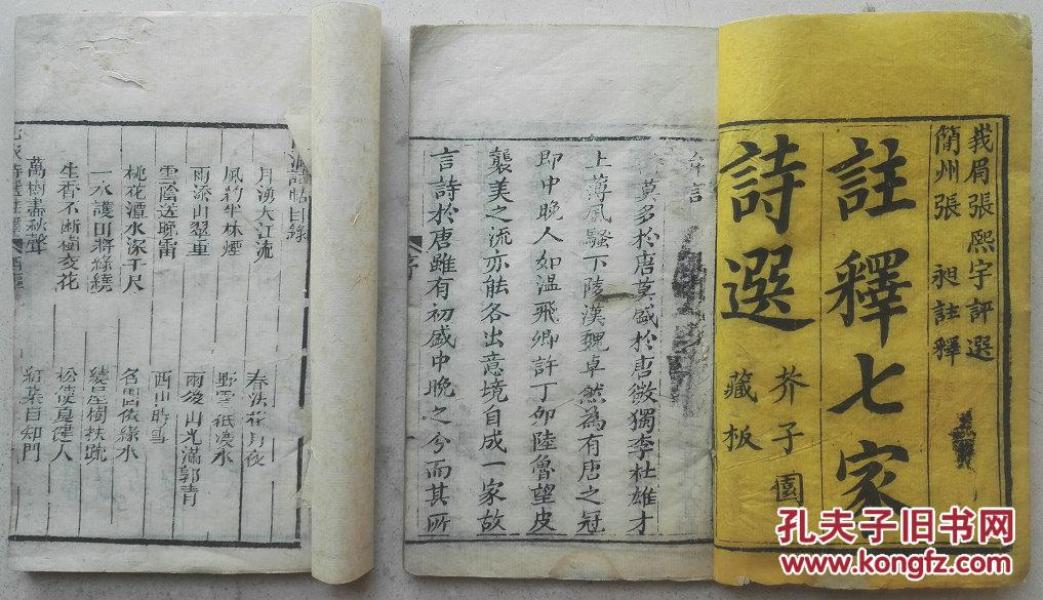 我眉張熙宇評選
簡州張 昶註釋
註釋七家
詩選
芥子園
藏板
弁言
莫多於唐莫盛於唐微獨李杜雄才
上薄風騷下陵漢魏卓然為有唐之冠
即中晚人如溫飛卿許丁卯陸魯望皮
襲美之流亦能各出意境自成一家故
言詩於唐雖有初盛中晚之分而其所
序
詩帖目錄
月湧大江流 春江花月夜
風約半林煙 野雲低渡水
雨添山翠重 雨後山光滿郭青
雲陰送晚雷 西山晴雪
桃花潭水深千尺 名園依綠水
一水護田將綠繞 繞屋樹扶疏
生香不斷樹交花 松使夏健人
萬樹盡秋聲 紅葉自知門
孔夫子旧书网
www.kongfz.com